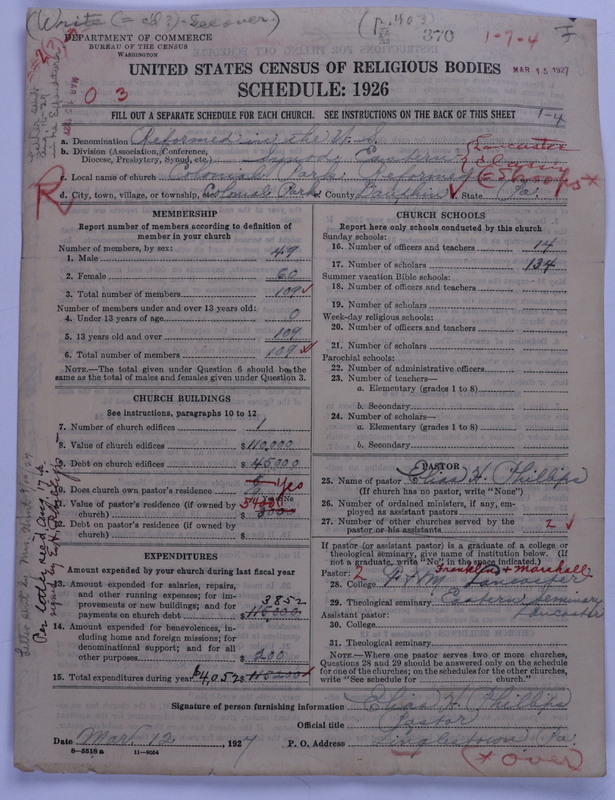 (Write (= ch?) - See over.)
(p. 403)
370
1-7-4
DEPARTMENT OF COMMERCE
BUREAU OF THE CENSUS
WASHINGTON
UNITED STATES CENSUS OF RELIGIOUS BODIES
MAR 15 1927
SCHEDULE: 1926
0 3
1-4
FILL OUT A SEPARATE SCHEDULE FOR EACH CHURCH. SEE INSTRUCTIONS ON THE BACK OF THIS SHEET
a. Denomination Reformed in the U.S.
b. Division (Association, Conference, Diocese, Presbytery, Synod, etc.) Synod, Eastern Lancaster Classis
c. Local name of church Colonial Park Reformed
d. City, town, village, or township, etc. Colonial Park County Dauphin State Pa.
MEMBERSHIP
Report number of members according to definition of
member in your church
Number of members, by sex:
1. Male 49
2. Female 60
3. Total number of members 109
Number of members under and over 13 years old:
4. Under 13 years of age 0
5. 13 years old and over 109
6. Total number of members 109
NOTE.—The total given under Question 6 should be the
same as the total of males and females given under Question 3.
CHURCH BUILDINGS
See instructions, paragraphs 10 to 12
7. Number of church edifices 1
8. Value of church edifices $110,000
9. Debt on church edifices $45,000
10. Does church own pastor's residence Yes
Yes or No
11. Value of pastor's residence (if owned by
church) $
12. Debt on pastor's residence (if owned by
church) $
EXPENDITURES
Amount expended by your church during last fiscal year
13. Amount expended for salaries, repairs,
and other running expenses; for im-
provements or new buildings; and for 3852
payments on church debt $115,000
14. Amount expended for benevolences, in-
cluding home and foreign missions; for
denominational support; and for all
other purposes $200
15. Total expenditures during year $4,052 $115200
CHURCH SCHOOLS
Report here only schools conducted by this church
Sunday schools:
16. Number of officers and teachers 14
17. Number of scholars 134
Summer vacation Bible schools:
18. Number of officers and teachers
19. Number of scholars
Week-day religious schools:
20. Number of officers and teachers
21. Number of scholars
Parochial schools:
22. Number of administrative officers
23. Number of teachers—
a. Elementary (grades 1 to 8)
b. Secondary
24. Number of scholars—
a. Elementary (grades 1 to 8)
b. Secondary
PASTOR
25. Name of pastor Elias H. Phillips
(If church has no pastor, write "None")
26. Number of ordained ministers, if any, em-
ployed as assistant pastors
27. Number of other churches served by the
pastor or his assistants 2
If pastor (or assistant pastor) is a graduate of a college or
theological seminary, give name of institution below. (If
not a graduate, write "No" in the space indicated.)
Pastor: 2 Franklin + Marshall
28. College F + M Lancaster
29. Theological seminary Eastern Seminary
Assistant pastor: Lancaster
30. College
31. Theological seminary
NOTE.—Where one pastor serves two or more churches,
Questions 28 and 29 should be answered only on the schedule
for one of the churches; on the schedules for the other churches,
write "See schedule for church."
Signature of person furnishing information Elias H. Phillips
Official title Pastor
Date Mar. 12, 1927 P. O. Address Linglestown Pa
8-5518 a 11-9064
(* over)
Per letter rec'd Aug. 17, 28
signed by E. H. Phillips